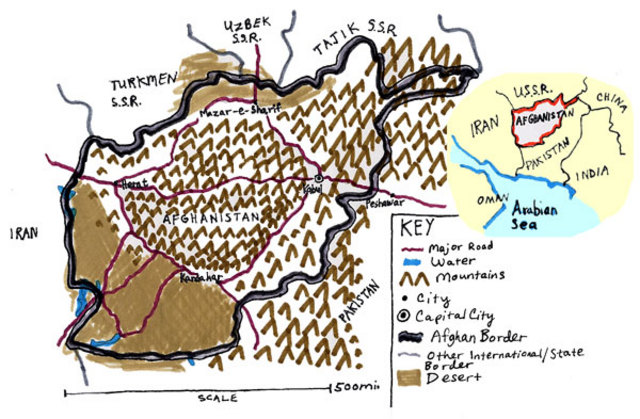 UZBEK
S.S.R.
TAJIK S.S.R.
TURKMEN
S.S.R.
Mazar-e-Sharif
Herat
Kabul
Peshawar
AFGHANISTAN
IRAN
Kandahar
PAKISTAN
500mi
SCALE
U.S.S.R.
CHINA
IRAN
AFGHANISTAN
PAKISTAN
INDIA
OMAN
Arabian
Sea
KEY
Major Road
Water
Mountains
City
Capital City
Afghan Border
Other International/State
Border
Desert